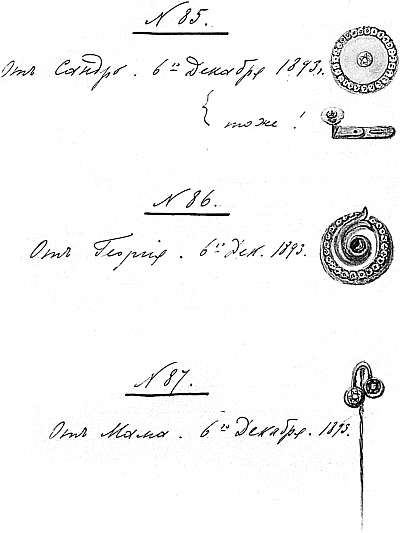 N 85.
Отъ Сандро. 6го Декабря 1893г.
тоже!
N 86.
Отъ Георгія. 6го Дек. 1893.
N 87.
Отъ Мама. 6го Декабря. 1893.